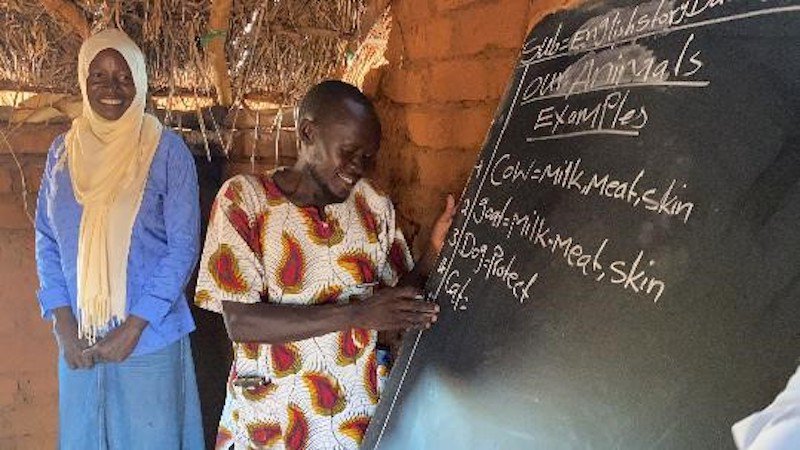 Sub=English story Da
Our Animals
Examples
1) Cow=Milk,Meat,skin
2) goat=Milk-Meat,skin
3) Dog=Protect
4) Cat=